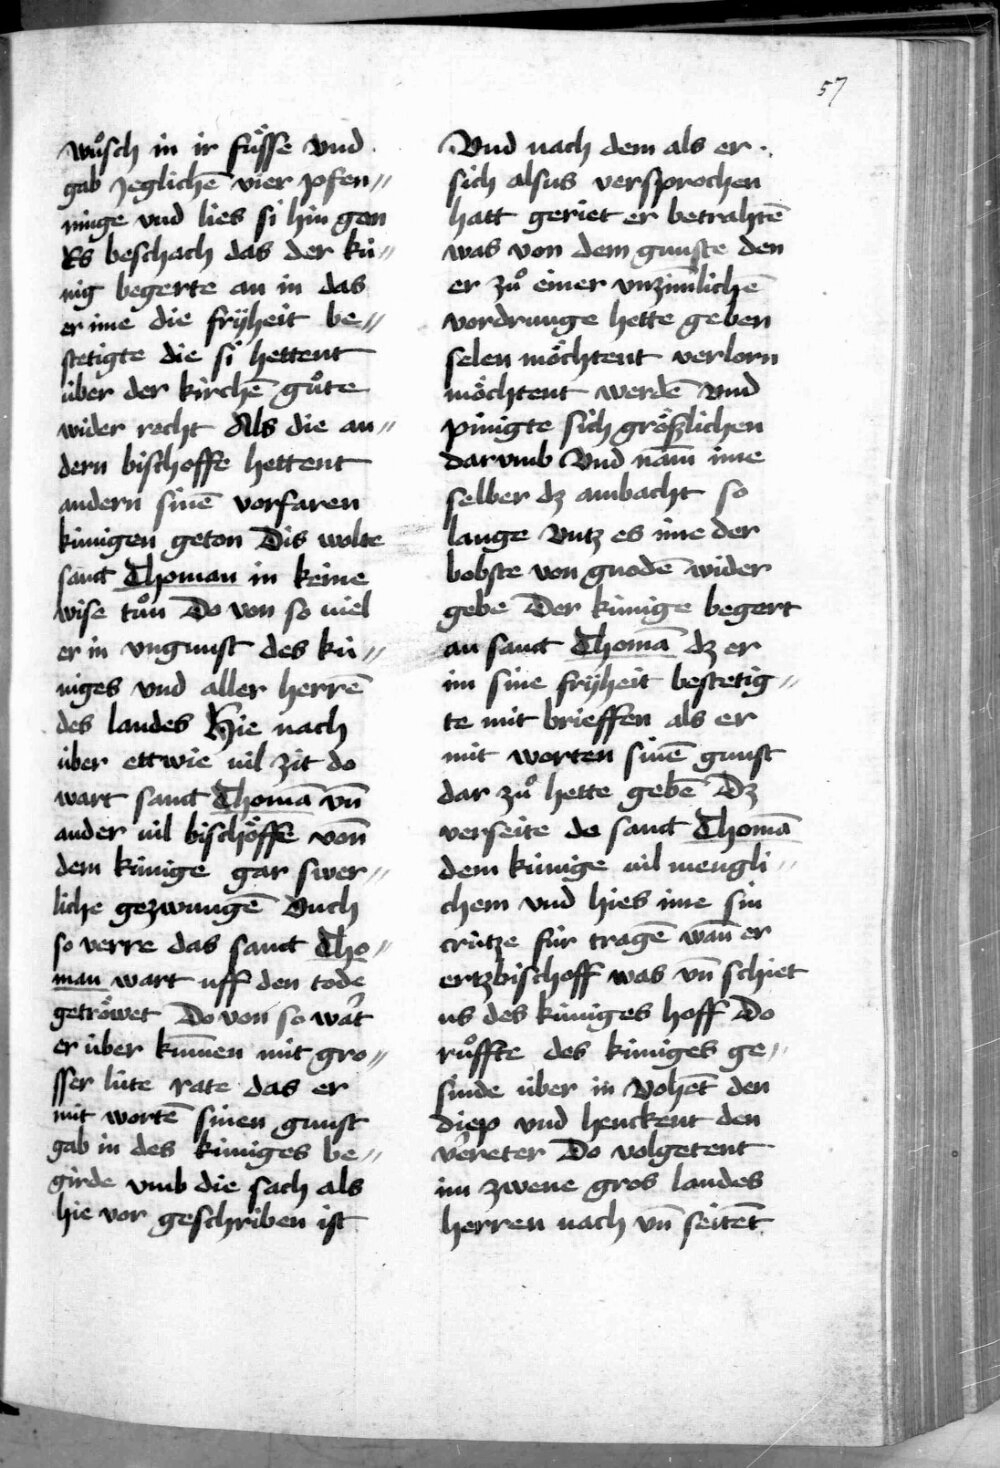 57
wůsch in ir fuͤsse vnd
gab Jeglichē vier pfen//
ninge vnd lies si hin gen
Es beschach das der kú//
nig begerte an in das
er ime die frÿheit be//
stetigte die si hettent
über der kirchē gůte
wider recht Als die an//
dern bischoffe hettent
andern sinē vorfaren
kúnigen geton Dis wolte
sanct Thoman in keine
wise tůn Do von so viel
er in vngunst des kú//
niges vnd aller herrē
des landes Hie nach
über ettwie vil zit do
wart sanct Thomā vn̄
ander vil bischöffe von̄
dem kúnige gar swer//
liche gezwungē Ouch
so verre das sanct Tho//
man wart uff den tode
getröwet Do von so wart
er über kum̄en mit gro//
sser lúte rate das er
mit wortē sinen gunst
gab in des kúniges be//
girde vmb die sach als
hie vor geschriben ist
Vnd nach dem als er
sich alsus versprochen
hatt geriet er betrahtē
was von dem gunste den
er zů einer vnzim̄lichē
vordrunge hette geben
selen möchtent verlorn
möchtent werdē Vnd
pinigte sich größlichen
darvmb Vnd nam̄ ime
selber dz ambacht so
lange Vntz es ime der
bobste von gnodē wider
gebe Der kúnige begert
an sanct Thomā dz er
im sine frÿheit bestetig//
te mit brieffen als er
mit worten sinē gunst
dar zů hette gebē Dz
verseite do sanct Thomā
dem kúnige vil mengli//
chem vnd hies ime sin
crútze fúr tragē wan̄ er
ertzbischoff was vn̄ schiet
us des kúniges hoff Do
růffte des kúniges ge//
sinde über in Vohēt den
diep vnd henckent den
v̾reter Do volgetent
im zwene gros landes
herren nach vn̄ seitēt